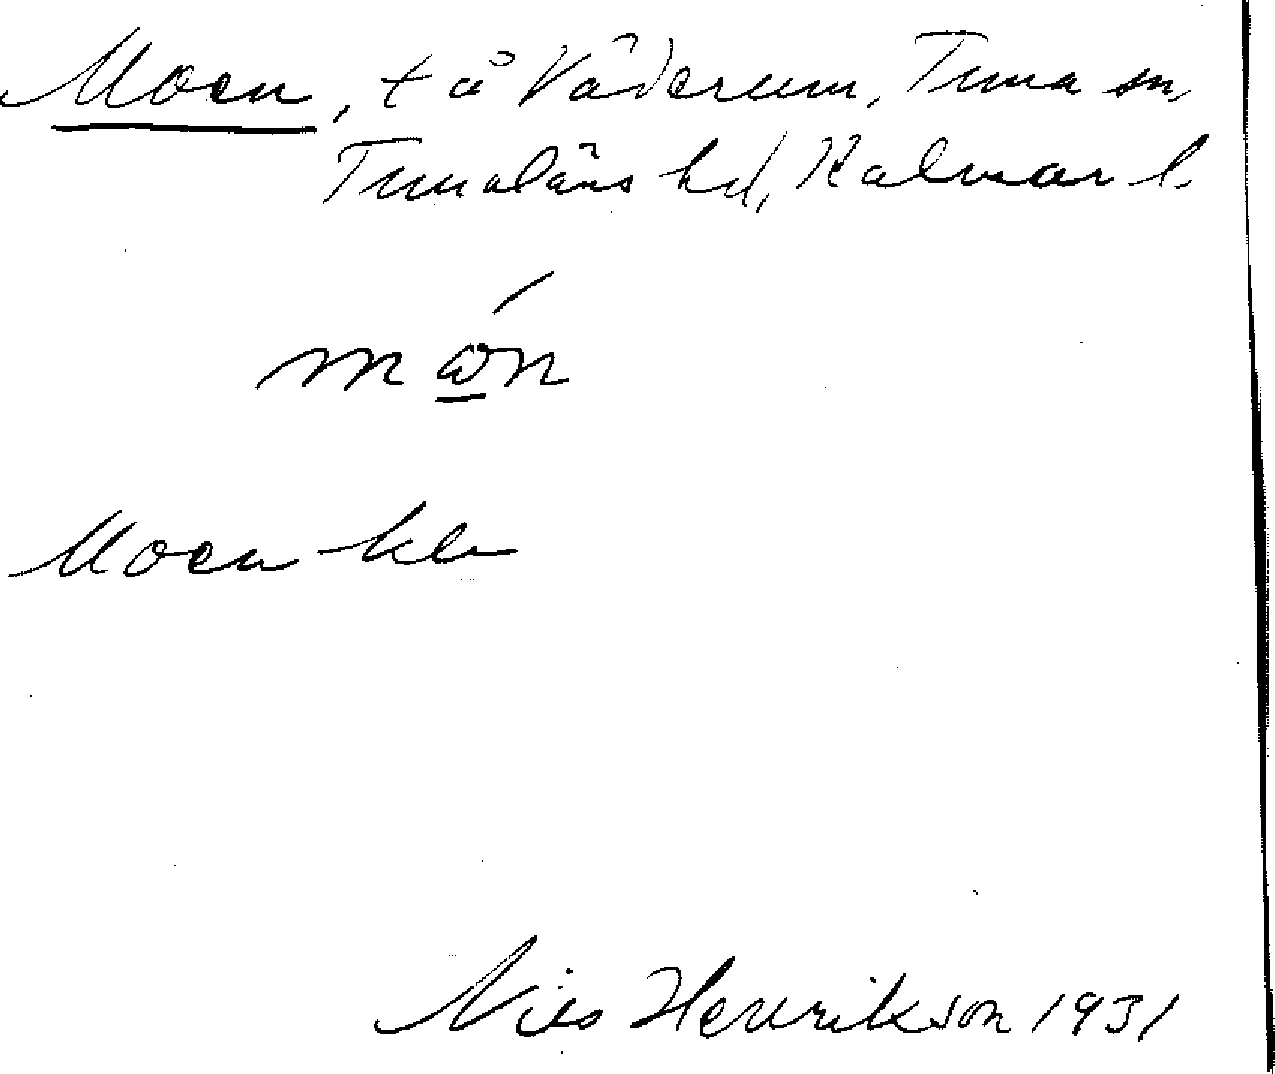 Moen, t å Väderum, Tuna sn,
Tunaläns hd, Kalmar l.
Moen kb
Nils Henrikson 1931